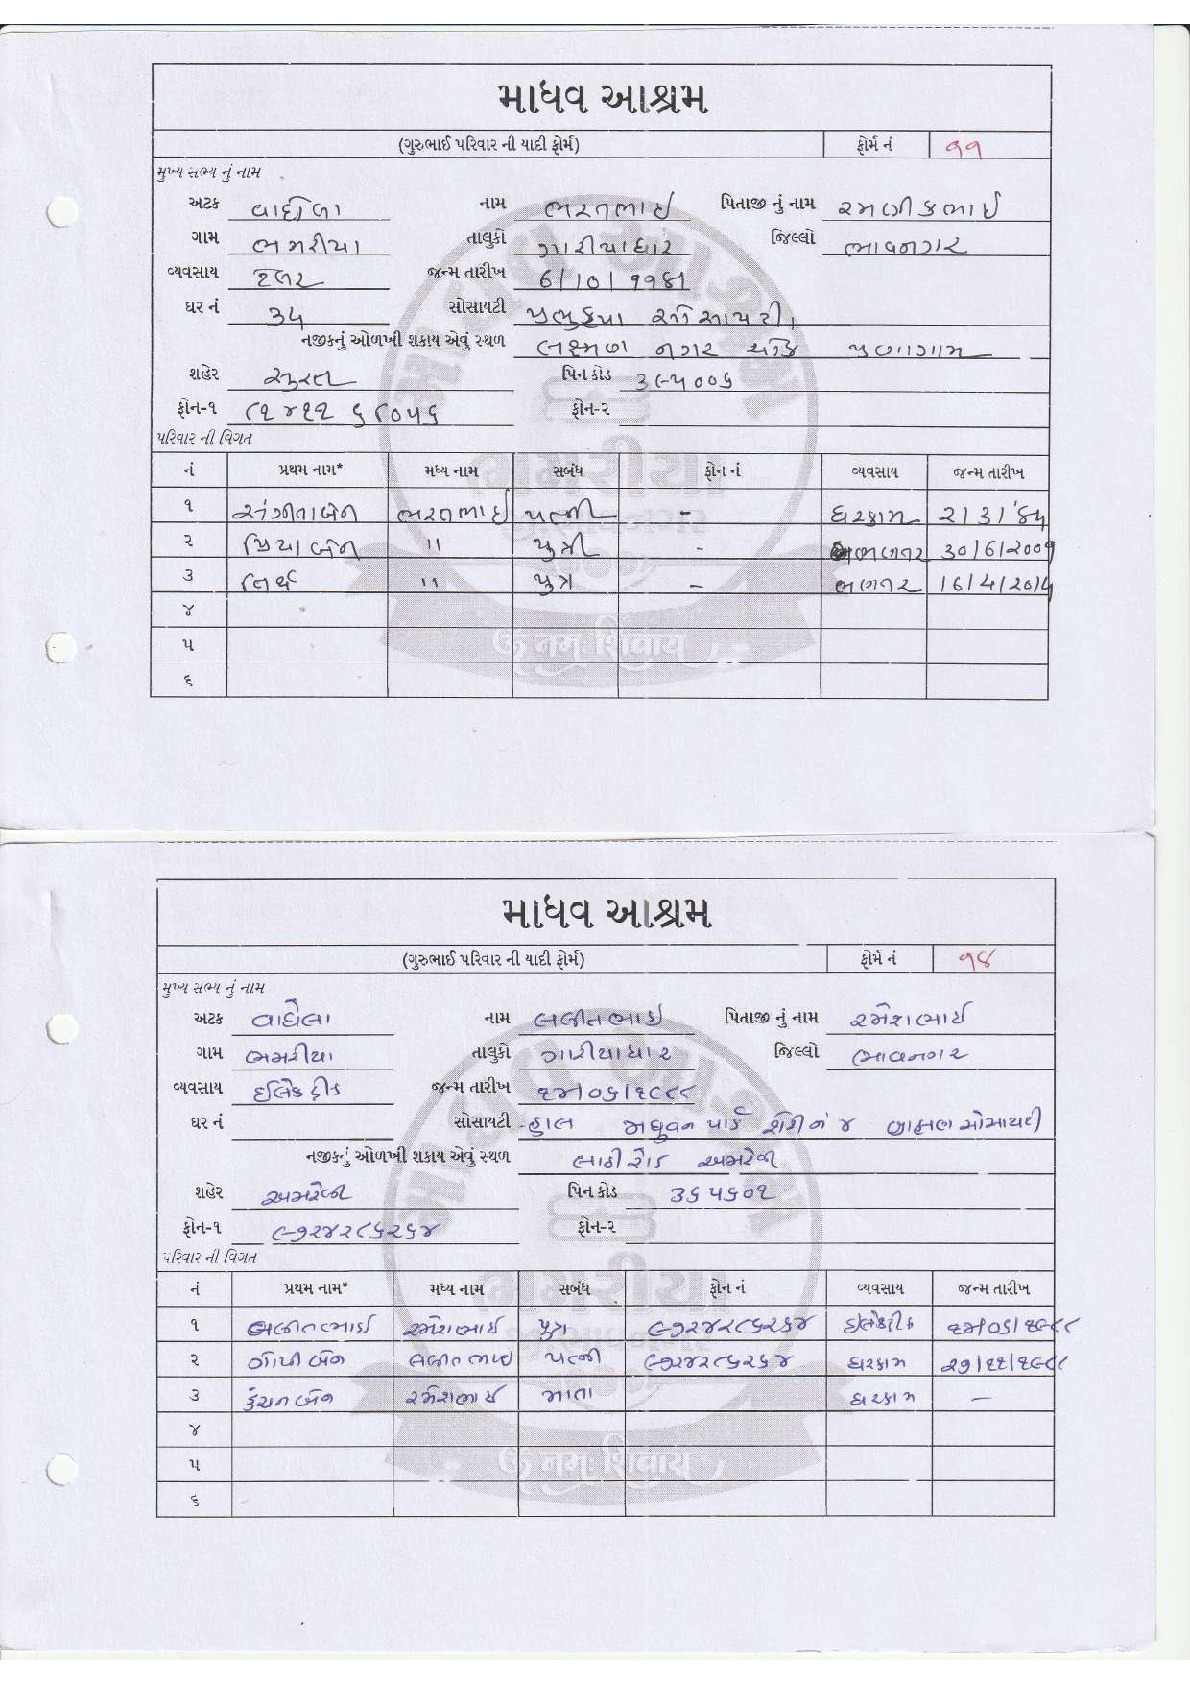 માધવ આશ્રમ
(ગુરુભાઈ પરિવાર ની યાદી ફોર્મ) ફોર્મ નં ૧૧
મુખ્ય સભ્ય નું નામ
અટક વાઘેલા નામ ભરતભાઇ પિતાજી નું નામ રમણીકભાઈ
ગામ ભમરીયા તાલુકો ગારીયાધાર જિલ્લો ભાવનગર
વ્યવસાય જન્મ તારીખ 6/10/૧૧૮૧
ઘર નં ૩૫ સોસાયટી પ્રભુકૃપા સોસાયટી,
નજીકનું ઓળખી શકાય એવું સ્થળ લક્ષ્મણ નગર ચોક પુણાગામ
શહેર સુરત પિન કોડ ૩૯૫૦૦૬
ફોન-૧ ફોન-૨
પરિવાર ની વિગત
નં પ્રથમ નામ* મધ્ય નામ સબંધ ફોન નં વ્યવસાય જન્મ તારીખ
૧ સંગીતાબેન ભરતભાઇ પત્ની - ઘરકામ 2/3/'84
૨ પ્રિયાબેન " પુત્રી - ભણતર 30/6/2009
૩ તિર્થ " પુત્ર - ભણતર 16/4/2014
૪
૫
૬
ૐ નમઃ શિવાય
માધવ આશ્રમ
(ગુરુભાઈ પરિવાર ની યાદી ફોર્મ) ફોર્મ નં ૧૪
મુખ્ય સભ્ય નું નામ
અટક વાઘેલા નામ લલીતભાઇ પિતાજી નું નામ રમેશભાઈ
ગામ ભમરીયા તાલુકો ગારીયાધાર જિલ્લો ભાવનગર
વ્યવસાય ઇલેક્ટ્રીક જન્મ તારીખ
ઘર નં સોસાયટી -હાલ મધુવન પાર્ક શેરી નં ૪ બ્રાહ્મણ સોસાયટી
નજીકનું ઓળખી શકાય એવું સ્થળ લાઠી રોડ અમરેલી
શહેર અમરેલી પિન કોડ ૩૬૫૬૦૧
ફોન-૧ ૯૭૨૪૨૮૬૨૬૪ ફોન-૨
પરિવાર ની વિગત
નં પ્રથમ નામ* મધ્ય નામ સબંધ ફોન નં વ્યવસાય જન્મ તારીખ
૧ લલીતભાઇ રમેશભાઇ પુત્ર ૯૭૨૪૨૮૬૨૬૪ ઇલેક્ટ્રીક
૨ ગોપીબેન લલીતભાઇ પત્ની ૯૭૨૪૨૮૬૨૬૪ ઘરકામ ૨૭/૧૧/૧૯૯૮
૩ કંચનબેન રમેશભાઇ માતા ઘરકામ —
૪
૫
૬
ૐ નમઃ શિવાય